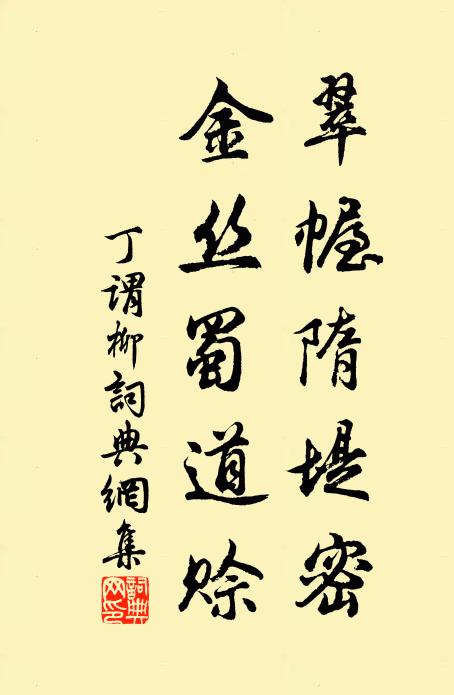 翠幄隋堤密
金丝蜀道赊
丁谓柳詞典網集
詞典網印